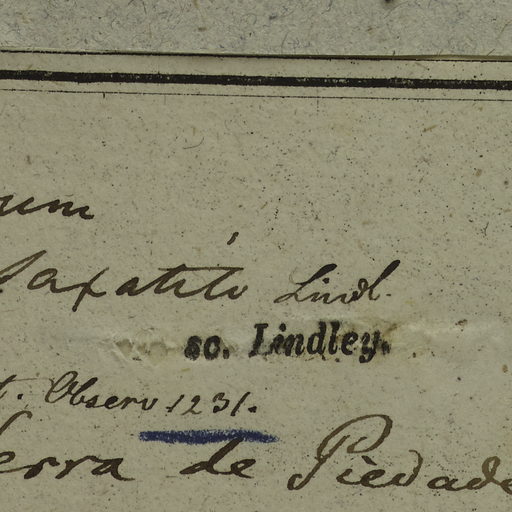 um
saxatile Lindl.
sc. Lindley.
t. Observ. 1231.
Serra de Piedade